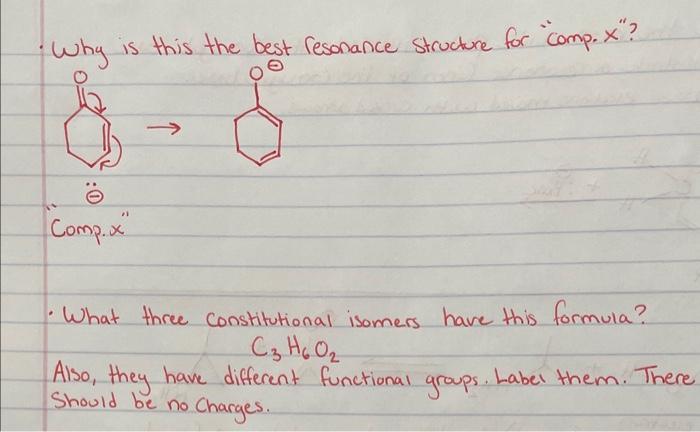 · Why is this the best resonance structure for "comp. x"?
O
O⊖
→
⊖
"Comp. x"
· What three constitutional isomers have this formula?
C₃H₆O₂
Also, they have different functional groups. Label them. There
Should be no Charges.